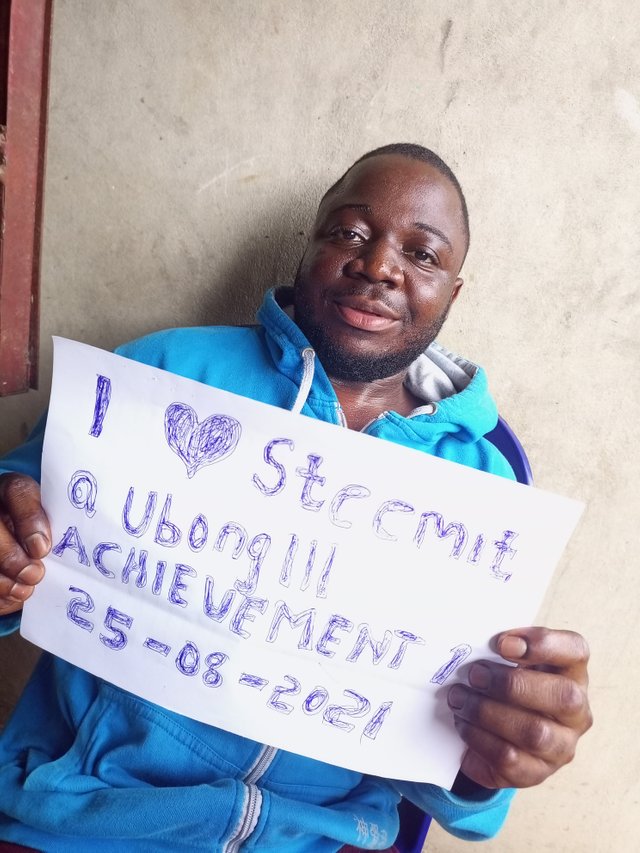 I ♥ Steemit
@Ubong111
ACHIEVEMENT 1
25-08-2021